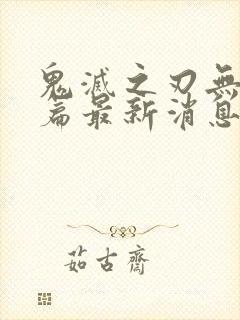 鬼滅之刃無
篇最新消息
茹古齋